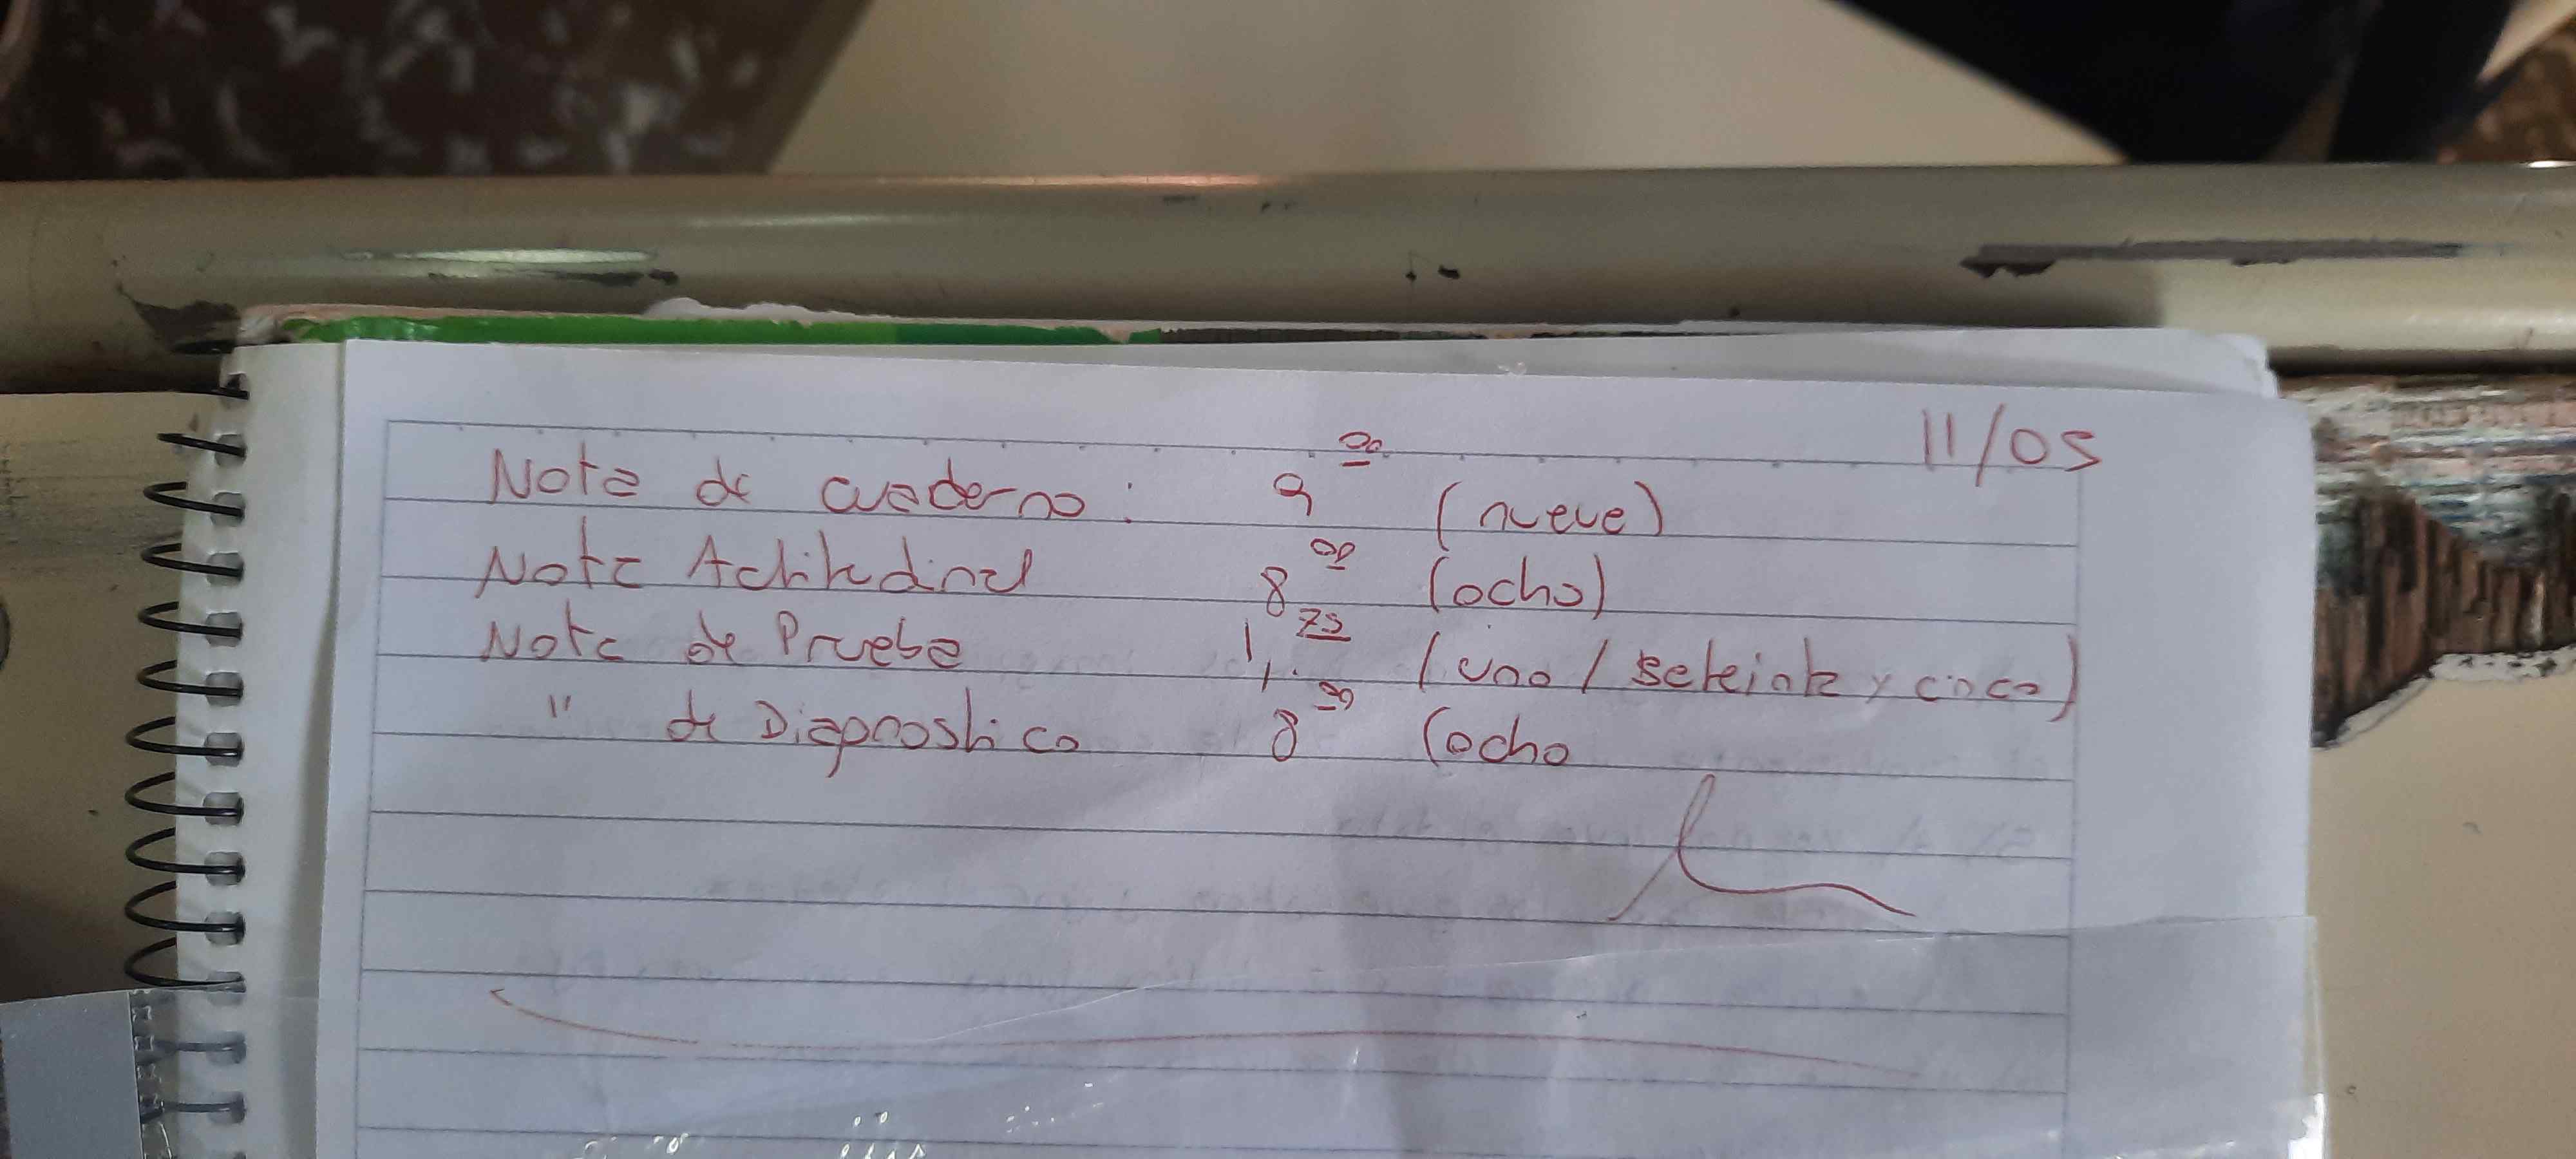 11/05
Nota de cuaderno: 9 00 (nueve)
Nota Actitudinal 8 00 (ocho)
Nota de Prueba 1, 75 (uno / seteinta y cinco)
" de Diagnostico 8 00 (ocho